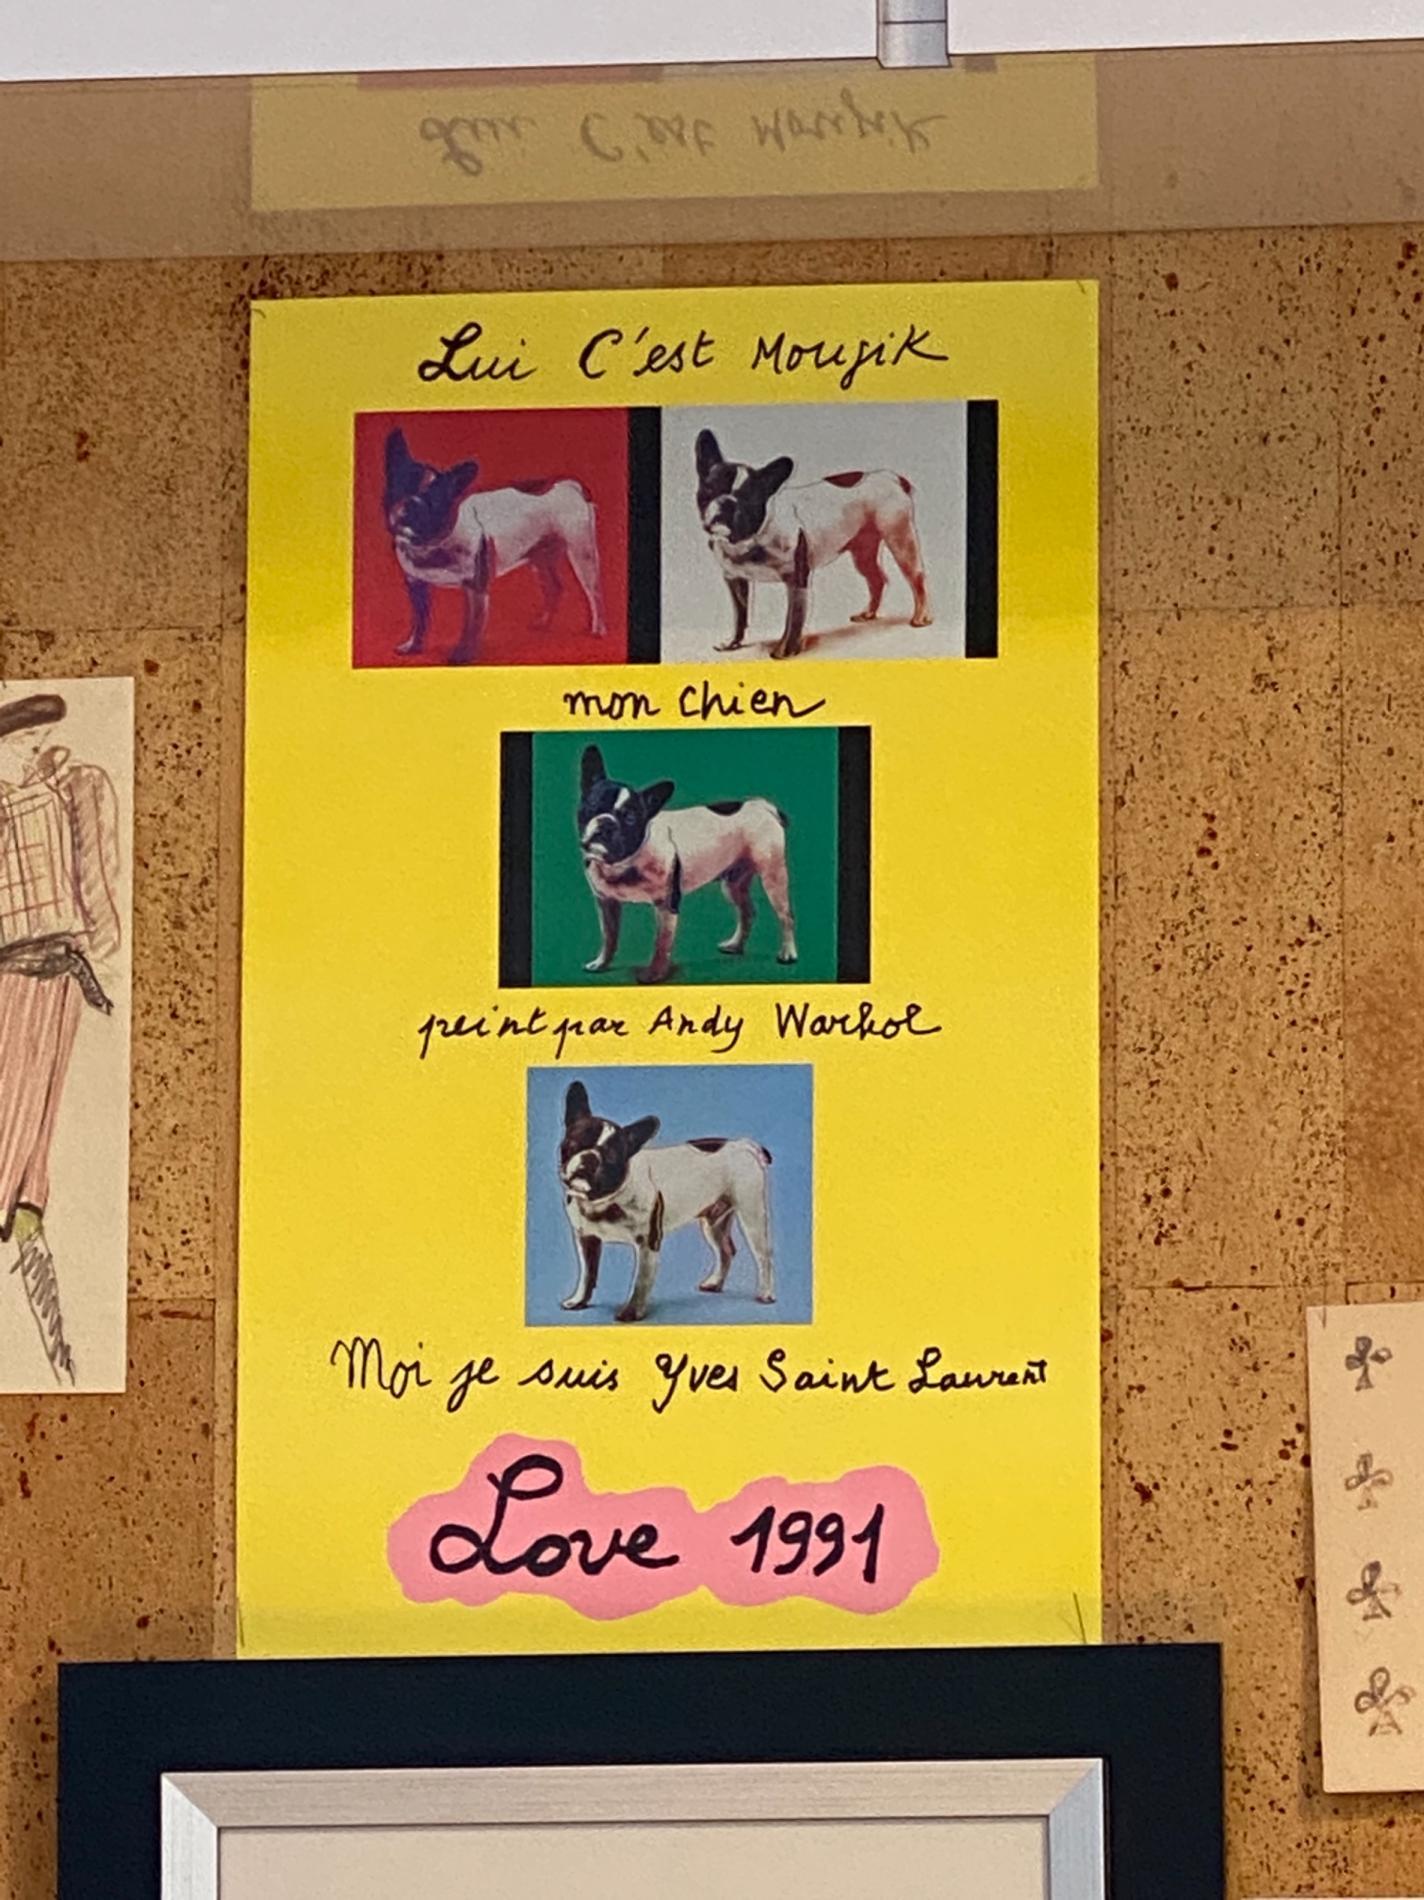 Lui C'est Moujik
mon chien
peint par Andy Warhol
Moi je suis Yves Saint Laurent
Love 1991